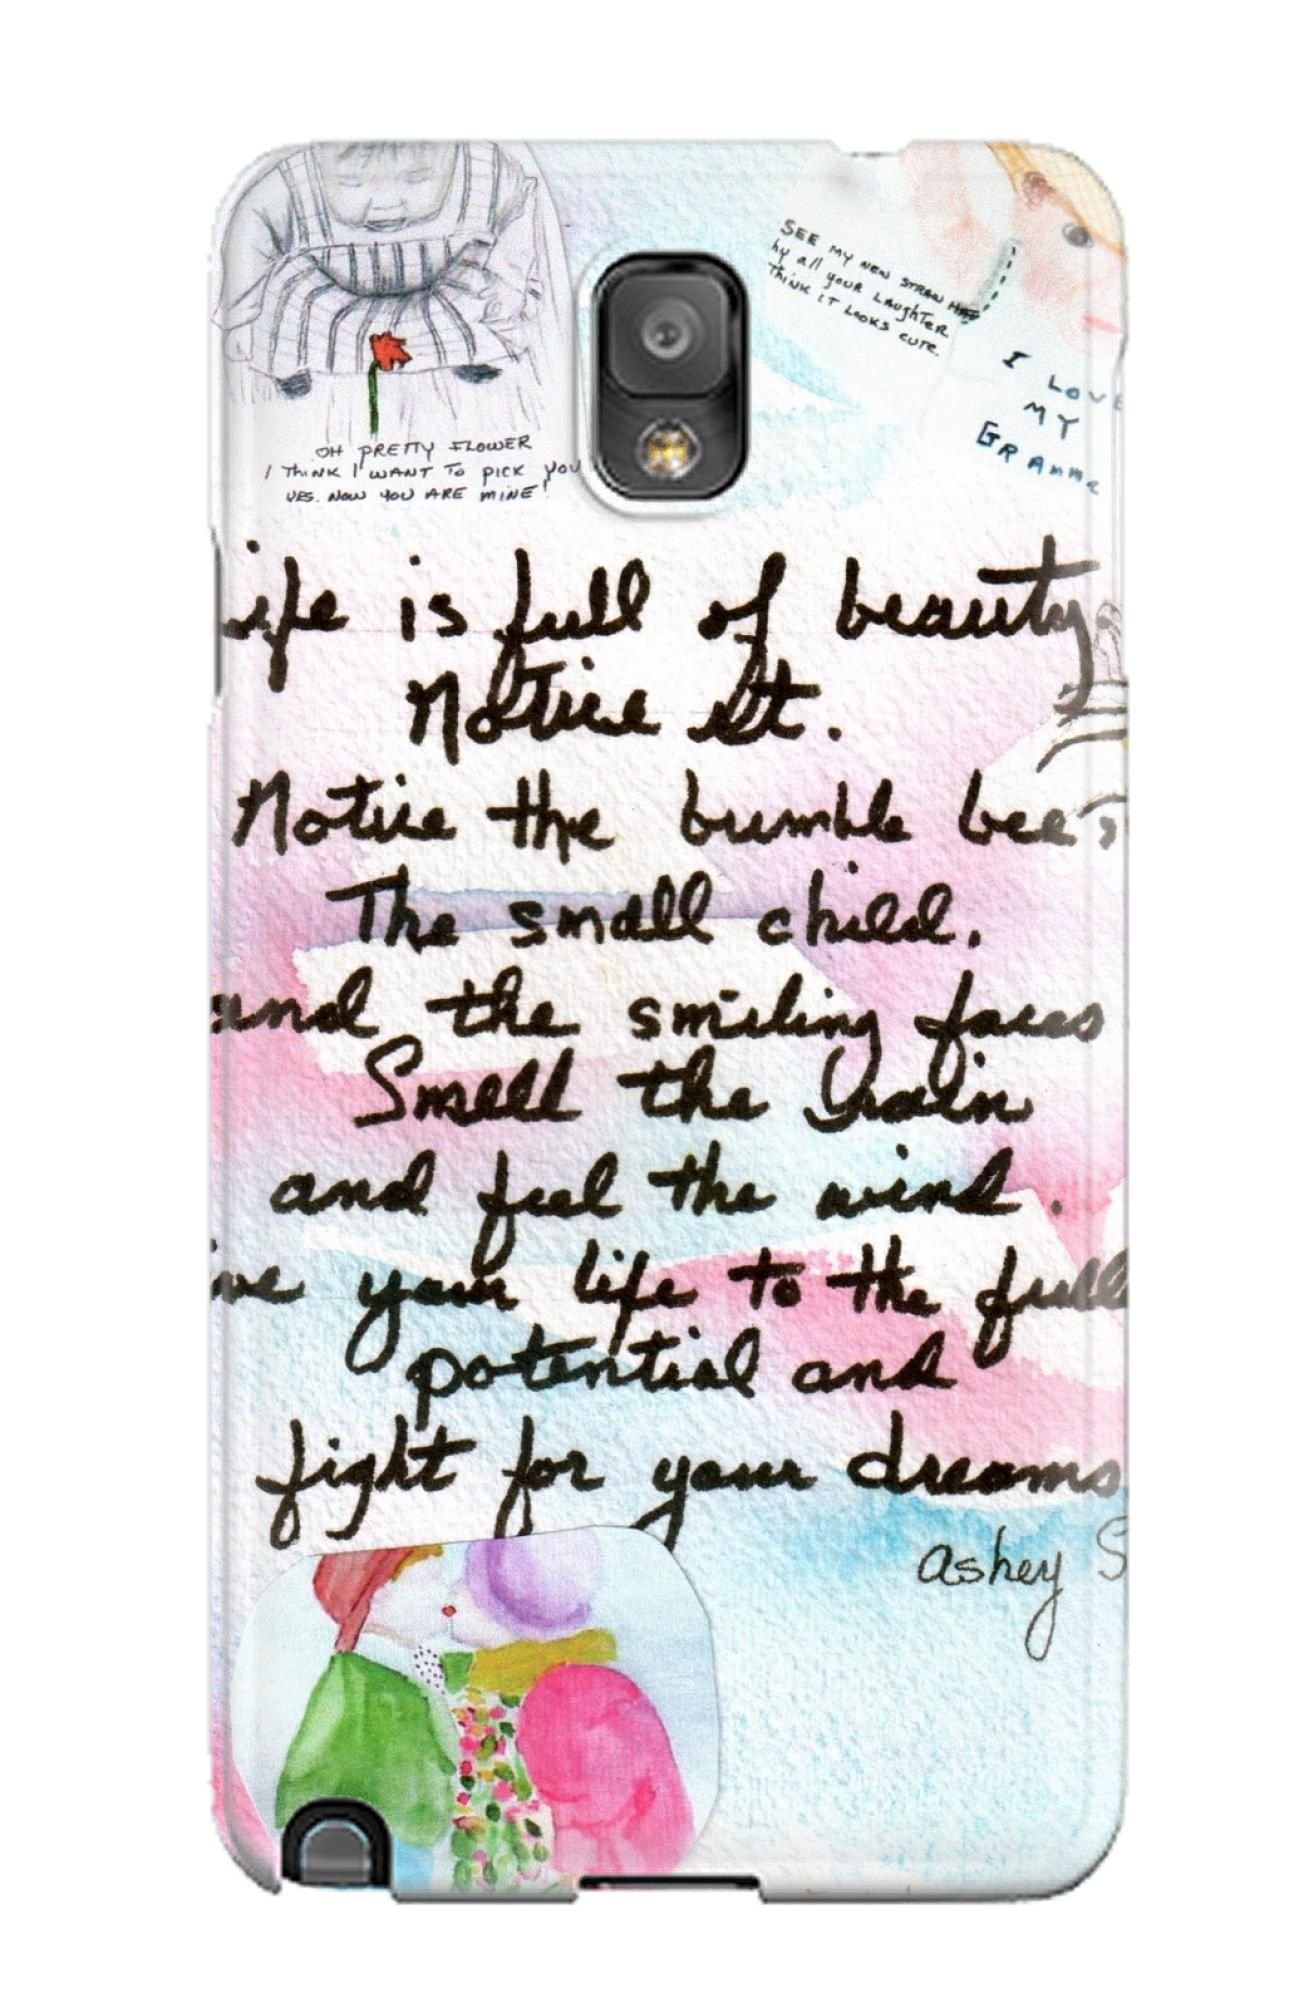 OH PRETTY FLOWER
I THINK I WANT TO PICK YOU
YES. NOW YOU ARE MINE!
SEE MY NEW STRAW HAT
by all your LAUGHTER
THINK IT LOOKS CUTE.
I LOVE
MY
GRamma
ife is full of beauty.
Notice it.
Notice the bumble bee,
The small child,
and the smiling faces
Smell the rain
and feel the wind.
ive your life to the full
potential and
fight for your dreams
Ashey S